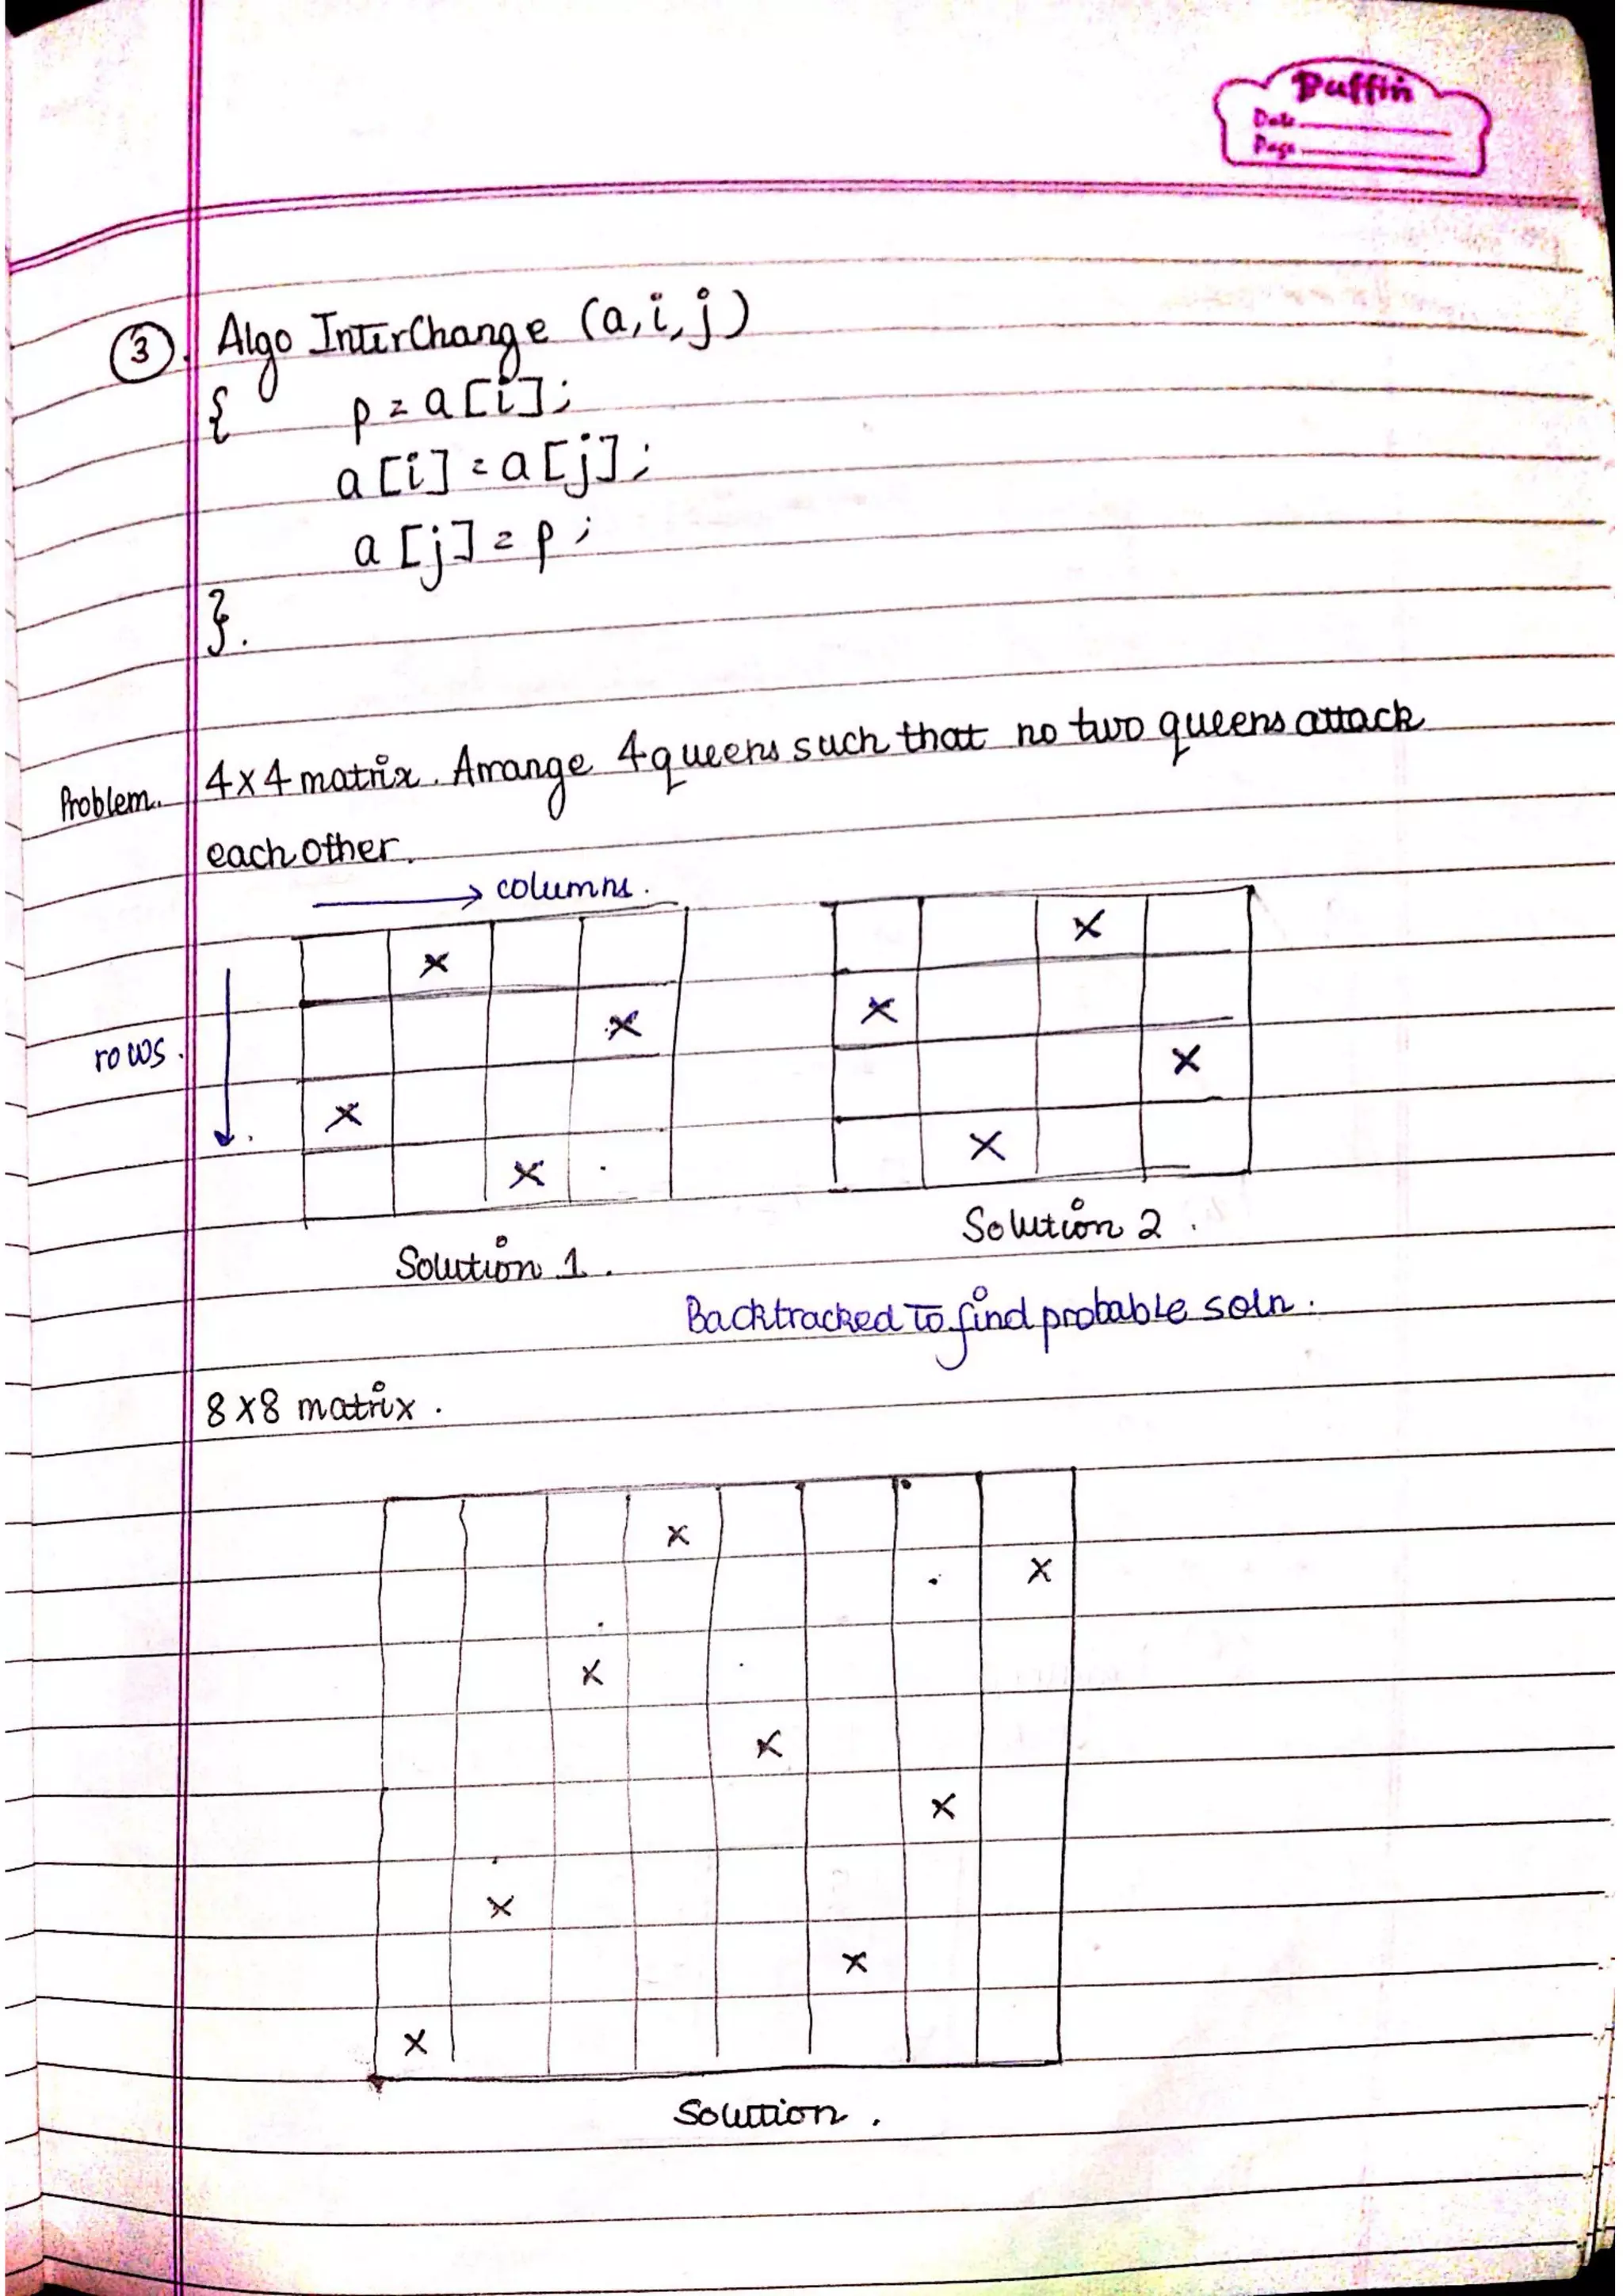 Puffin
Date
Page
3. Algo InterChange (a, i, j)
{ p = a[i];
a[i] = a[j];
a[j] = p;
}.
Problem. 4x4 matrix. Arrange 4 queens such that no two queens attack
each other.
→ columns.
x x
x x
rows.
x x
x x
Solution 2.
Solution 1.
Backtracked to find probable soln.
8x8 matrix.
x
x
x
x
x
x
x
x
Solution.